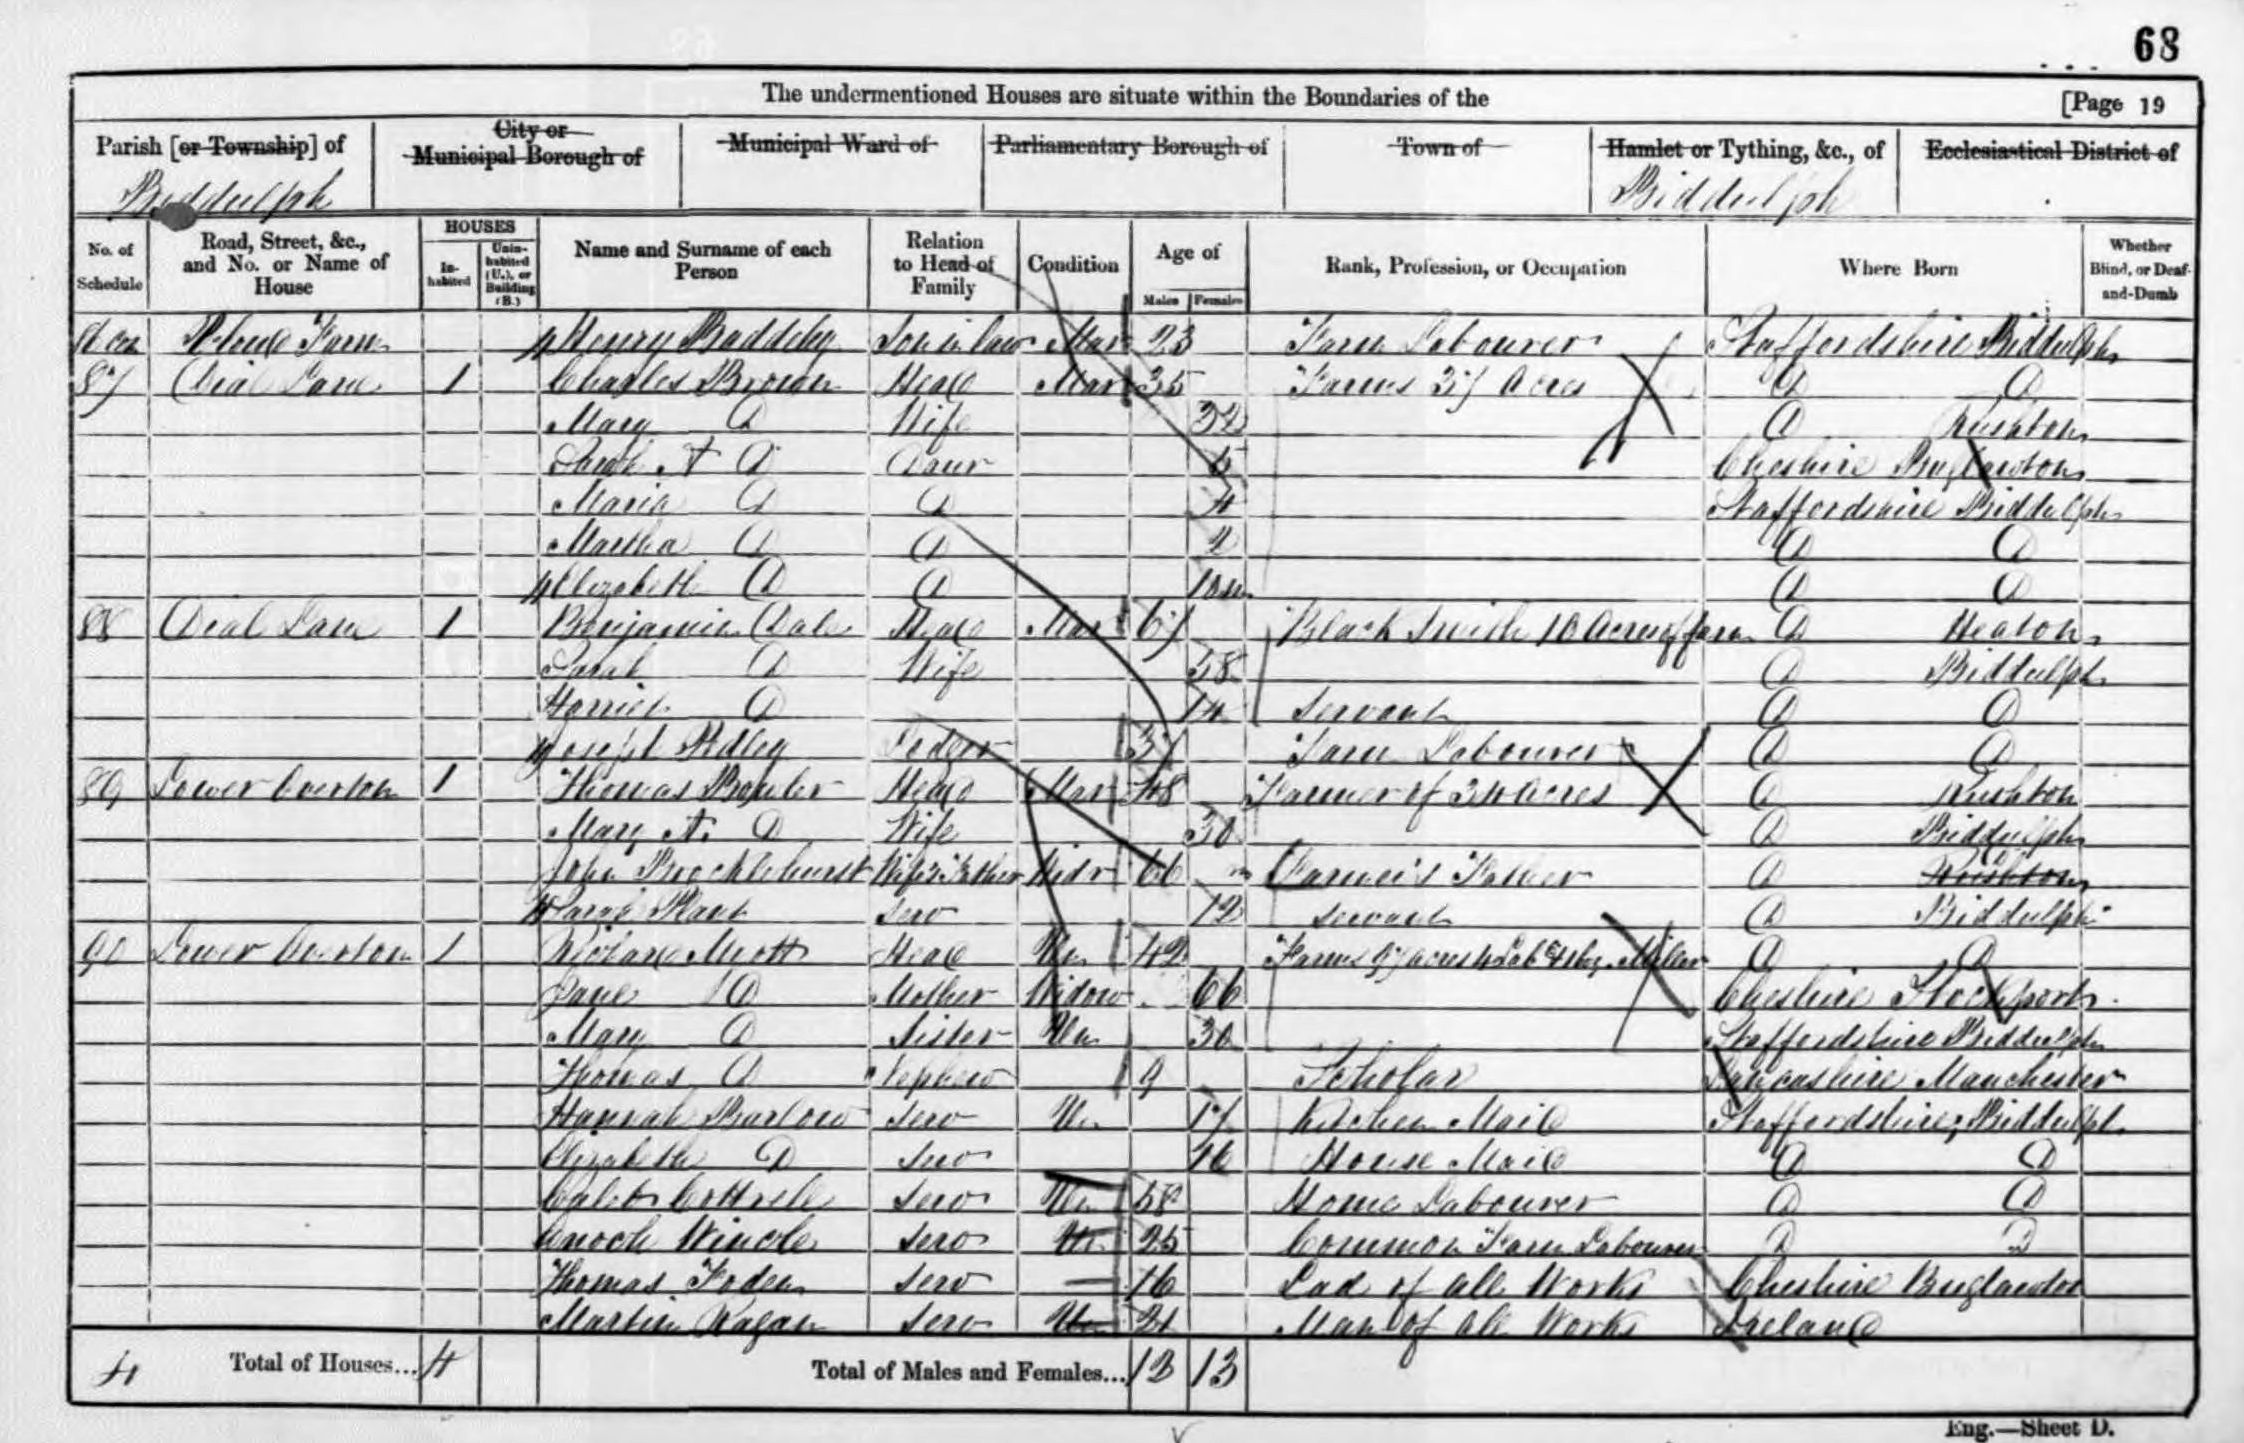 68
The undermentioned Houses are situate within the Boundaries of the [Page 19
Parish [or Township] of City or Municipal Borough of Municipal Ward of Parliamentary Borough of Town of Hamlet or Tything, &c., of Ecclesiastical District of
Biddulph Biddulph
No. of Schedule Road, Street, &c., and No. or Name of House HOUSES Inhabited Uninhabited (U.), or Building (B.) Name and Surname of each Person Relation to Head of Family Condition Age of Males Females Rank, Profession, or Occupation Where Born Whether Blind, or Deaf-and-Dumb
Farm Henry Baddeley Son in law Mar 23 Farm Labourer Staffordshire Biddulph
87 Dial Lane 1 Charles Brown Head Mar 35 Farms 37 Acres D D
Mary D Wife 32 D Rushton
Sarah A D Daur 5 Cheshire Buglawton
Maria D D 4 Staffordshire Biddulph
Martha D D 2 D D
Elizabeth D D 10m D D
88 Dial Lane 1 Benjamin Dale Head Mar 67 Black Smith 10 Acres of farm D Heaton
Sarah D Wife 58 D Biddulph
Harriet D 14 Servant D D
Joseph Ridley Lodger 37 Farm Labourer D D
89 Lower Overton 1 Thomas Head Mar 48 Farmer of 34 Acres D Rushton
Mary A. D Wife 30 D Biddulph
John Brocklehurst Wife's Father Widr 66 Farmer's Father D Rushton
Sarah Plant Serv 12 Servant D Biddulph
90 Lower Overton 1 Richard Myott Head Un 42 Farms 97 acres 4 Lab Miller D D
Jane D Mother Widow 66 Cheshire Stockport
Mary D Sister Un 30 Staffordshire Biddulph
Thomas D Nephew 9 Scholar Lancashire Manchester
Hannah Barlow Serv Un 17 Kitchen Maid Staffordshire Biddulph
Elizabeth D Serv 16 House Maid D D
Caleb Cottrell Serv Un 58 Home Labourer D D
Enoch Wincle Serv Un 25 Common Farm Labourer D D
Thomas Foden Serv — 16 Lad of all Works Cheshire Buglawton
Martin Ragan Serv Un 21 Man of all Works Ireland
4 Total of Houses... 4 Total of Males and Females... 12 13
Eng.—Sheet D.